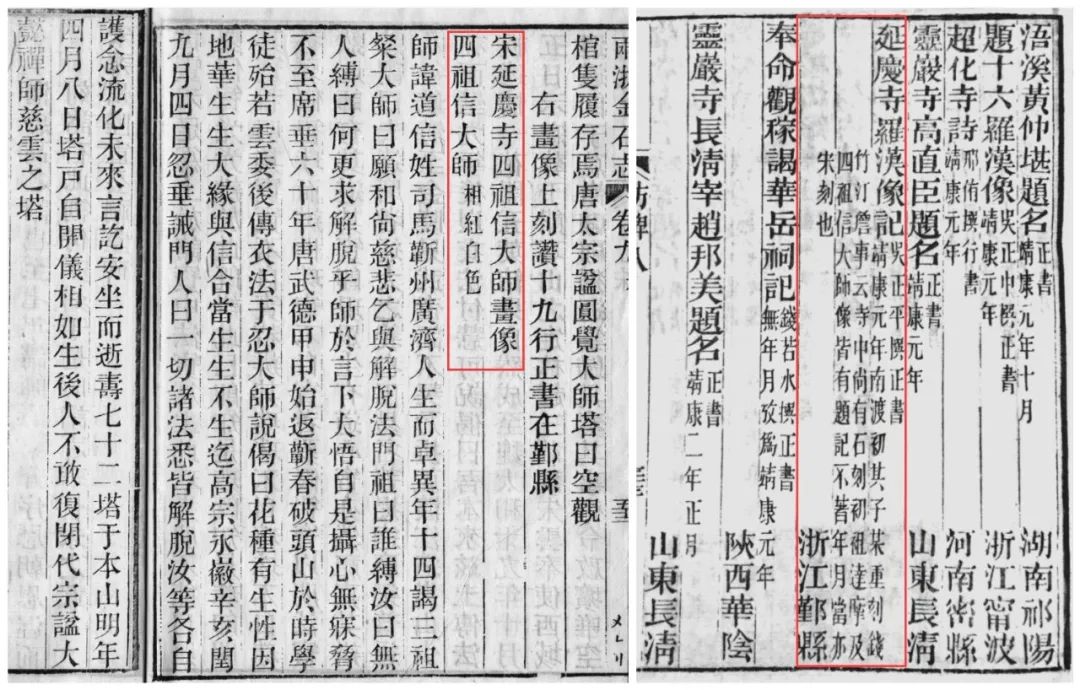 兩浙金石志 卷九
棺隻履存焉唐太宗諡圓覺大師塔曰空觀
右畫像上刻讚十九行正書在鄞縣
宋延慶寺四祖信大師畫像
四祖信大師 相紅白色
師諱道信姓司馬蘄州廣濟人生而卓異年十四謁三祖
粲大師曰願和尚慈悲乞與解脫法門祖曰誰縛汝曰無
人縛曰何更求解脫乎師於言下大悟自是攝心無寐脅
不至席垂六十年唐武德甲申始返蘄春破頭山於時學
徒殆若雲委後傳衣法于忍大師說偈曰花種有生性因
地華生生大緣與信合當生生不生迄高宗永徽辛亥閏
九月四日忍垂誡門人曰一切諸法悉皆解脫汝等各自
護念流化未來言訖安坐而逝壽七十二塔于本山明年
四月八日塔戶自開儀相如生後人不敢復閉代宗諡大
毉禪師慈雲之塔
浯溪黃仲堪題名 正書 靖康元年十月 湖南祁陽
題十六羅漢像 吳正中撰正書 靖康元年 浙江甯波
超化寺詩 邢侑撰行書 靖康元年 河南密縣
靈巖寺高直臣題名 正書 靖康元年 山東長清
延慶寺羅漢像記 吳正平撰正書 靖康元年南渡初其子某重刻錢
竹汀詹事云寺中尚有石刻初祖達摩及
四祖信大師像皆有題記不著年月當亦
宋刻也 浙江鄞縣
奉命觀稼謁華岳祠記 錢若水撰正書 無年月攷爲靖康元年 陝西華陰
靈巖寺長清宰趙邦美題名 正書 靖康二年正月 山東長清
訪碑八